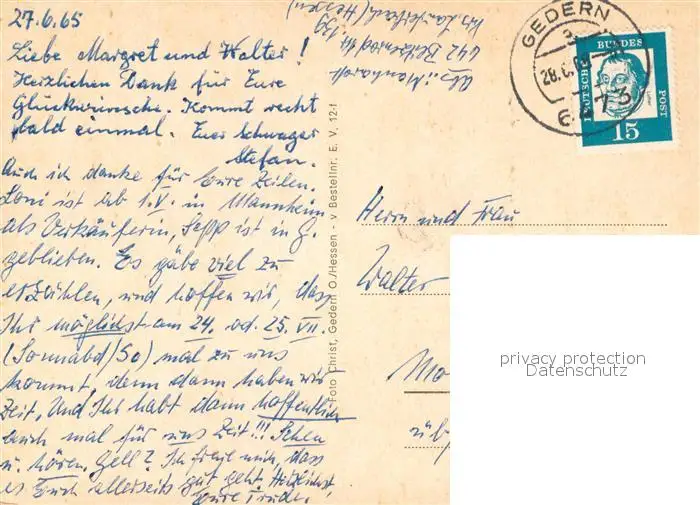 27.6.65
Liebe Margret und Walter!
Herzlichen Dank für Eure
Glückwünsche. Kommt recht
bald einmal. Euer Schwager
Stefan.
Auch ich danke für Eure Zeilen.
Loni ist ab 1.V. in Mannheim
als Verkäuferin, Sepp ist in G.
geblieben. Es gäbe viel zu
erzählen, und hoffen wir, dass
Ihr möglichst am 24. od. 25. VII.
(Sonnabd/So) mal zu uns
kommt, denn dann haben wir
Zeit, Und Ihr habt dann hoffentlich
auch mal für uns Zeit!!! Sehen
u. hören. gell? Ich freue mich, dass
es Euch allerseits gut geht. Herzlichst,
Eure Trude.
Foto Christ, Gedern O./Hessen - v Bestellnr. E. V. 12-f
Abs.:
642
(Hessen)
GEDERN
28.6.
6473
DEUTSCHE BUNDESPOST
15
Herrn und Frau
Walter
Mo
üb
privacy protection
Datenschutz